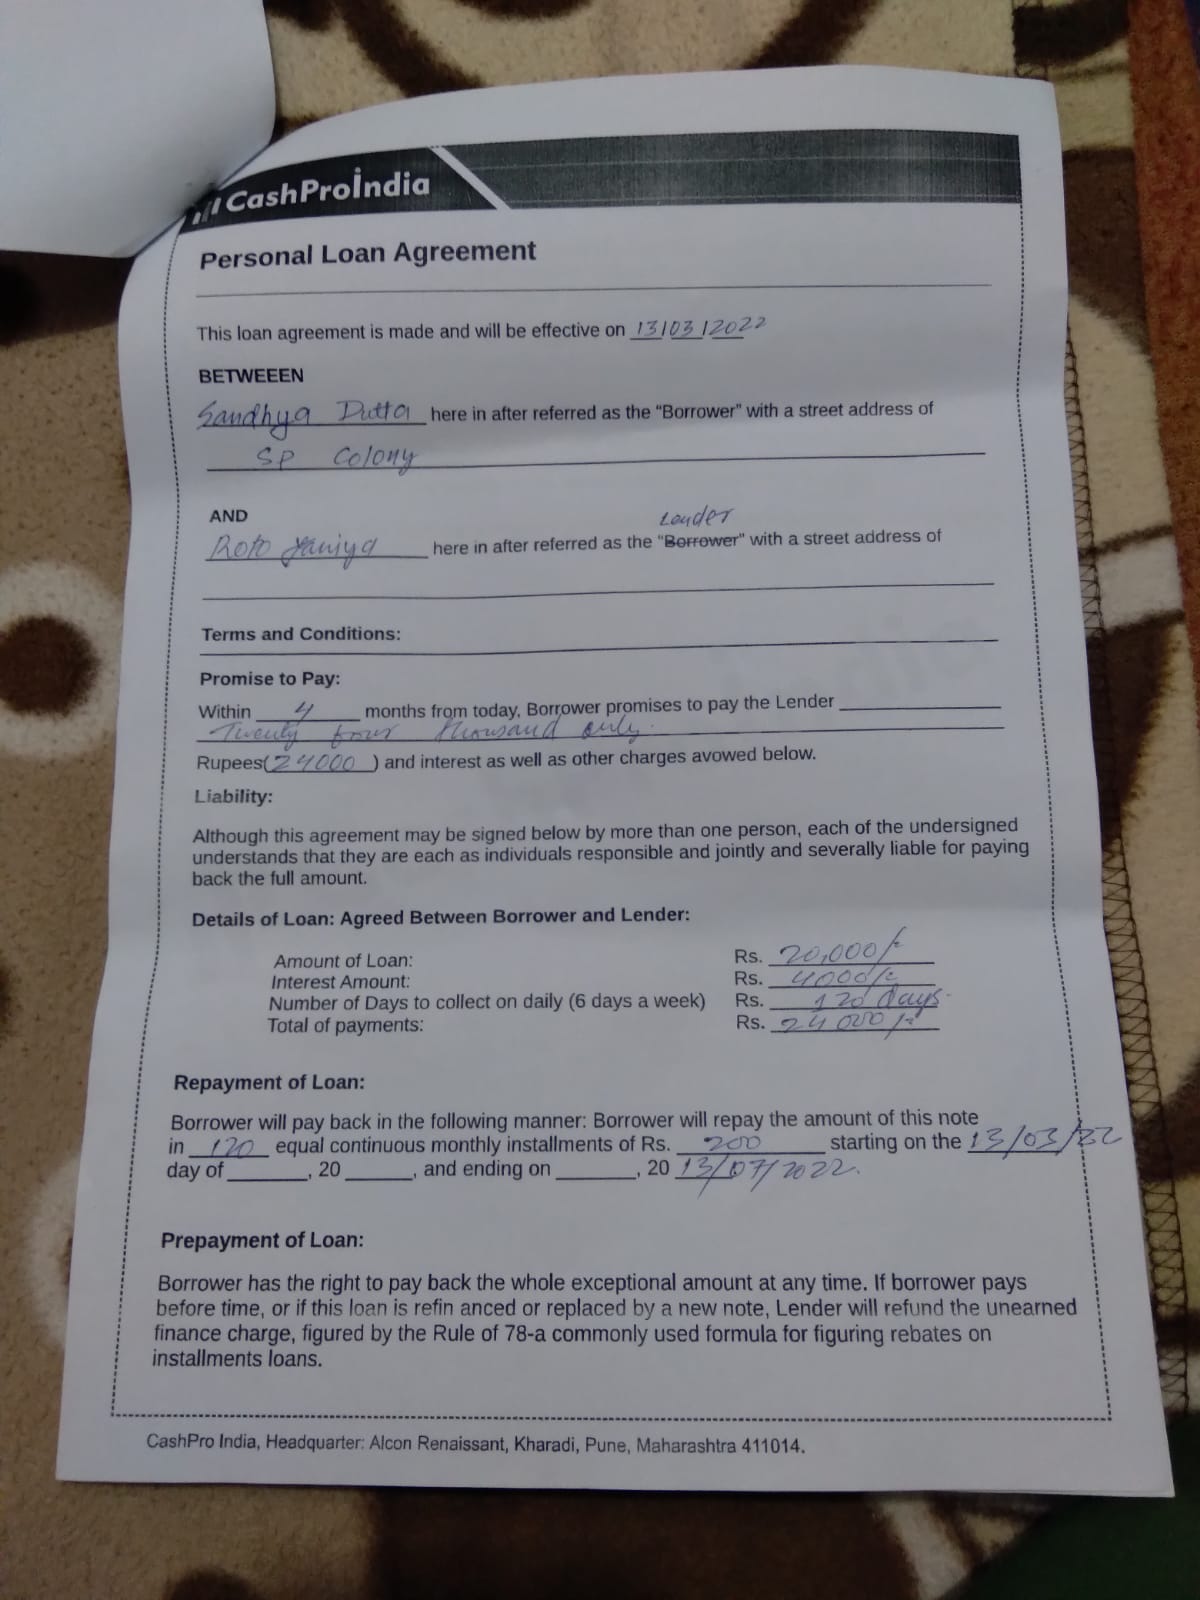 CashProIndia
Personal Loan Agreement
This loan agreement is made and will be effective on 13/03/2022
BETWEEEN
Sandhya Dutta here in after referred as the "Borrower" with a street address of
SP Colony
AND
Lender
Roto here in after referred as the "Borrower" with a street address of
Terms and Conditions:
Promise to Pay:
Within 4 months from today, Borrower promises to pay the Lender
Twenty four thousand only.
Rupees(24000) and interest as well as other charges avowed below.
Liability:
Although this agreement may be signed below by more than one person, each of the undersigned
understands that they are each as individuals responsible and jointly and severally liable for paying
back the full amount.
Details of Loan: Agreed Between Borrower and Lender:
Amount of Loan: Rs. 20,000/-
Interest Amount: Rs. 4000/-
Number of Days to collect on daily (6 days a week) Rs. 120 days.
Total of payments: Rs. 24000/-
Repayment of Loan:
Borrower will pay back in the following manner: Borrower will repay the amount of this note
in 120 equal continuous monthly installments of Rs. 200 starting on the 13/03/22
day of , 20 , and ending on , 20 13/07/2022.
Prepayment of Loan:
Borrower has the right to pay back the whole exceptional amount at any time. If borrower pays
before time, or if this loan is refin anced or replaced by a new note, Lender will refund the unearned
finance charge, figured by the Rule of 78-a commonly used formula for figuring rebates on
installments loans.
CashPro India, Headquarter: Alcon Renaissant, Kharadi, Pune, Maharashtra 411014.